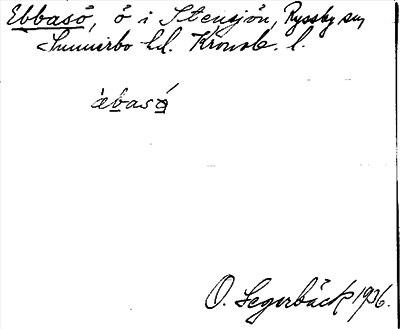 Ebbasö, ö i Stensjön, Ryssby sn,
Sunnerbo hd. Kronob. l.
æ̀basó
O. Segerbäck 1936.